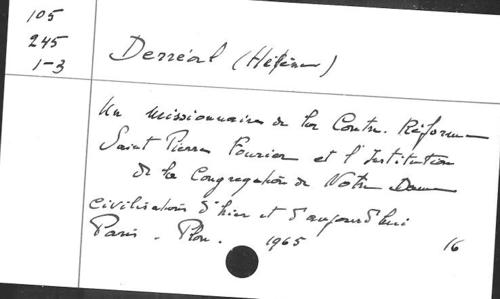 105
245
1-3
Derréal (Hélène)
Un missionnaire de la Contre. Réforme
Saint Pierre Fourier et l'Institution
de la Congregation de Notre Dame
Civilisations d'hier et d'aujourd'hui
Paris. Plon. 1965 16